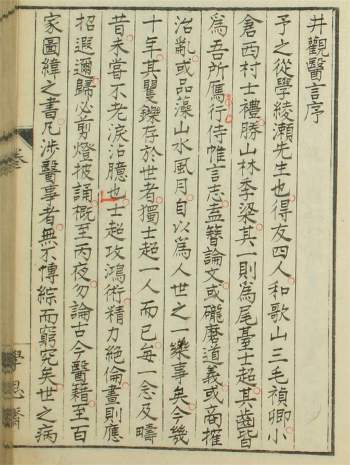 井觀醫言序
予之從學綾瀨先生也得友四人和歌山三毛禎卿小
倉西村士禮勝山林李梁其一則爲尾臺士超其齒皆
爲吾所鴈行侍帷言志盍簪論文或礲磨道義或商搉
治亂或品藻山水風月自以爲人世之一樂事矣今幾
十年其矍鑠存於世者獨士超一人而已每一念及疇
昔未嘗不老淚沾臆也士超攻鴻術精力絕倫晝則應
招遐邇歸必剪燈披誦槪至丙夜勿論古今醫籍至一百
家圖緯之書凡涉醫事者無不博綜而窮究矣世之病